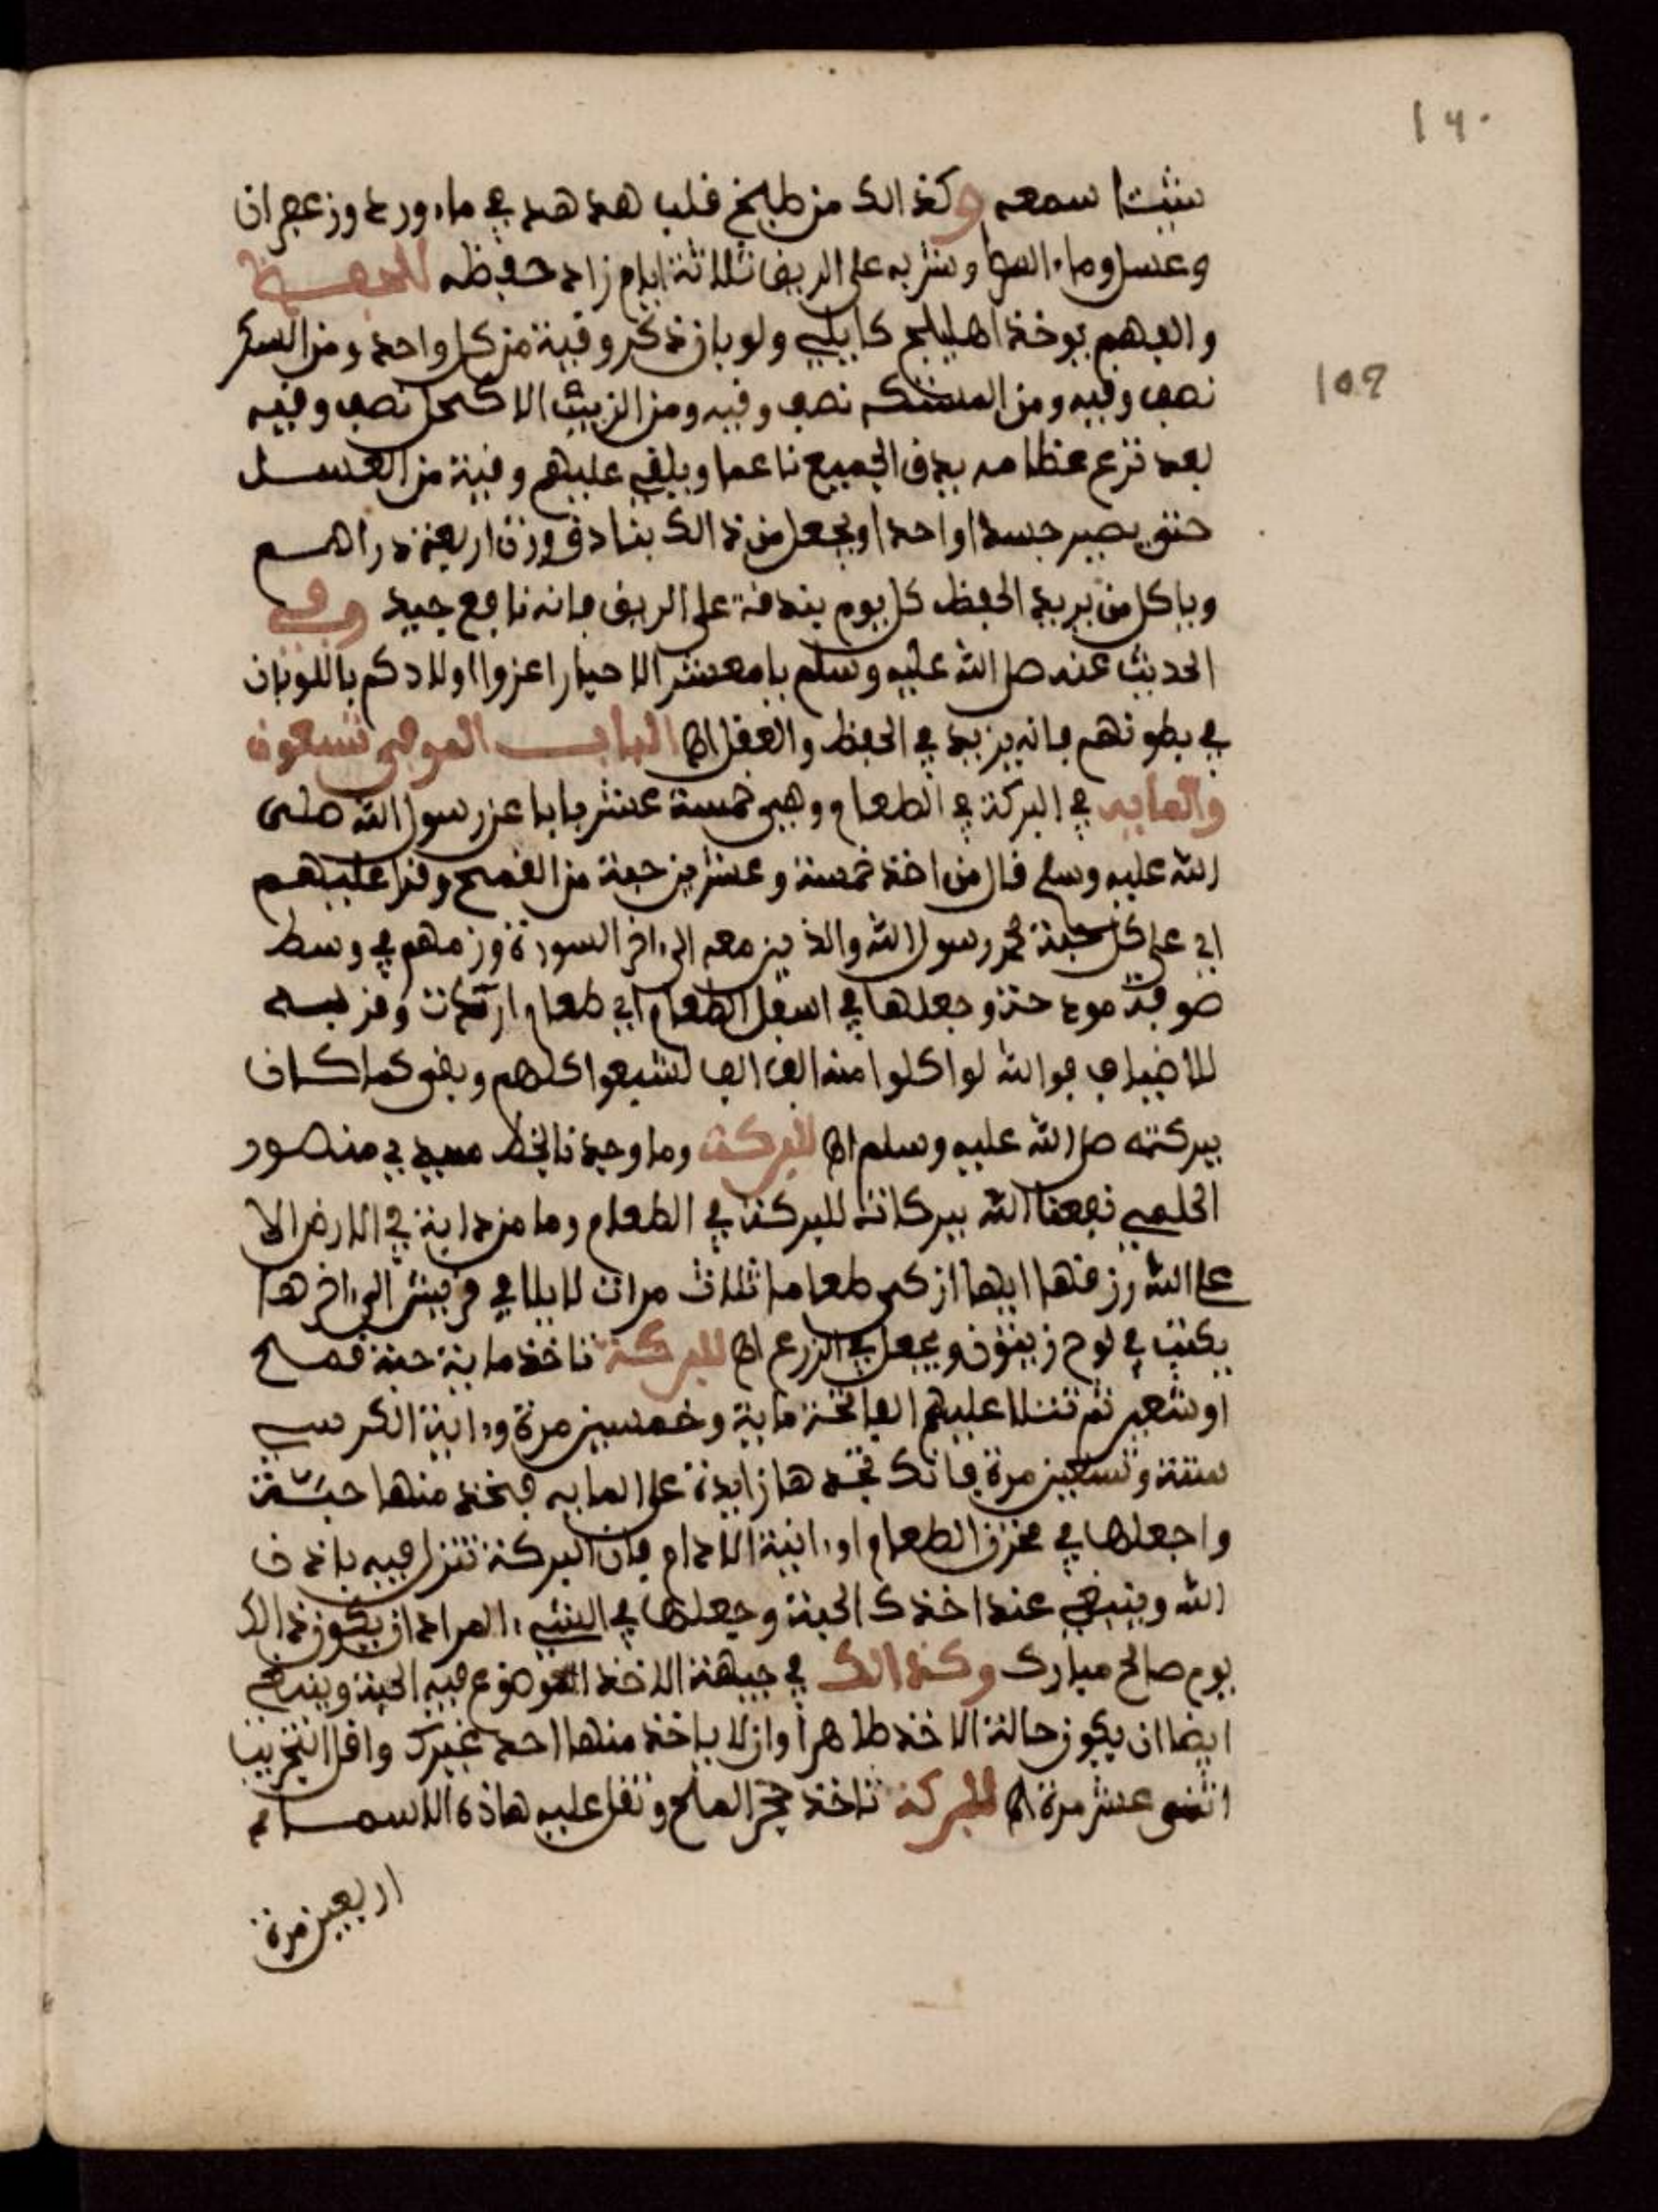 ١٦٠
شيئا سمعه وكذالك من طبخ قلب هدهد في ماء ورد وزعفران
وعسل وماء وشربه على الريق ثلاثة ايام زاد حفظه للحفظ
والفهم يوخذ اهليلج كابلي ولوبان ذكر وقية من كل واحد ومن السكر
109
نصف وقيه ومن نصف وقيه ومن الزبيب الاكحل نصف وقيه
بعد نزع عظامه يدق الجميع ناعما ويلقى عليهم وقية من العسل
حتى يصير جسدا واحدا ويجعل من ذالك بنادق وزن اربعة دراهم
وياكل من يريد الحفظ كل يوم بندقة على الريق فانه نافع جيد وفي
الحديث عنه صل الله عليه وسلم يا معشر الاحبار اعزوا اولادكم باللوبان
في بطونهم فانه يزيد في الحفظ والعقل اه الباب الموفي تسعون
والمايه في البركة في الطعام وهي خمسة عشر بابا عن رسول الله صلى
الله عليه وسلم قال من اخذ خمسة وعشرين حبة من القمح وقرا عليهم
اي على كل حبة محمد رسول الله والذين معه الى اخر السورة وزمهم في وسط
وجعلها في اسفل الطعام اي طعام وقربه
للاضياف فوالله لو اكلوا منه الف الف لشبعوا كلهم وبقى كما كان
ببركته صل الله عليه وسلم اه للبركة وما وجدنا بخط سيدي منصور
الحلمي نفعنا الله ببركاته للبركة في الطعام وما من دابة في الارض الا
على الله رزقها ايها ازكى طعاما ثلاث مرات لايلاف قريش الى اخرها
يكتب في لوح زيتون ويجعل في الزرع اه للبركة تاخذ ماية حبة قمح
او شعير ثم تتلا عليهم الفاتحة ماية وخمسين مرة وءاية الكرسي
ستة وتسعين مرة فانك تجدها زايدة على المايه فخذ منها حبة
واجعلها في مخزن الطعام او ءانية الادام فان البركة تنزل فيه باذن
الله وينبغي عند اخذك الحبة وجعلها في الشيء المراد ان يكون ذالك
يوم صالح مبارك وكذالك في جبهة الاخذ الموضوع فيه الحبة وينبغي
ايضا ان يكون حالة الاخذ طاهرا وان لا ياخذ منها احد غيرك واقل التجريب
اثنى عشر مرة اه للبركة تاخذ حجر الملح وتقل عليه هاذه الاسماء
اربعين مرة